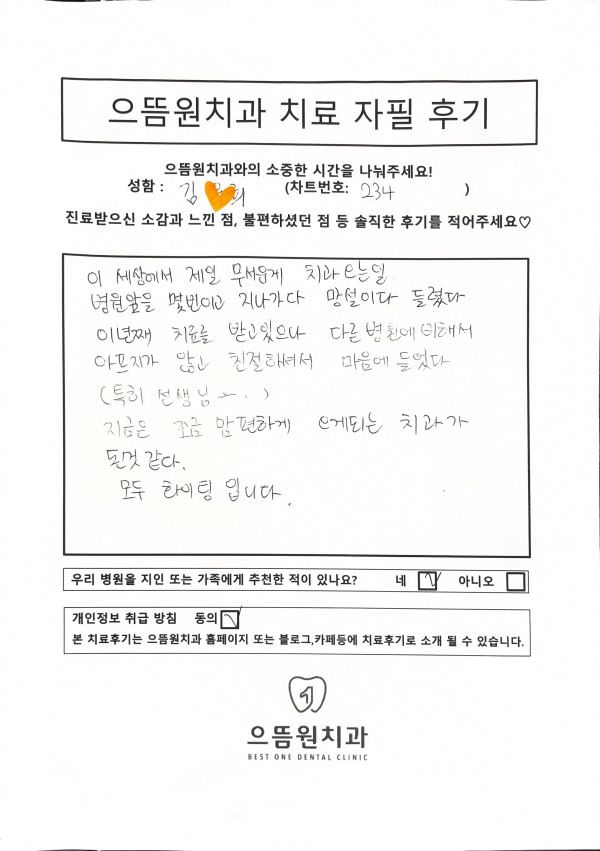 으뜸원치과 치료 자필 후기
으뜸원치과와의 소중한 시간을 나눠주세요!
성함 : 김 희 (차트번호: 234 )
진료받으신 소감과 느낀 점, 불편하셨던 점 등 솔직한 후기를 적어주세요♡
이 세상에서 제일 무서운게 치과 는일
병원앞을 몇번이고 지나가다 망설이다 들렸다
이년째 치료를 받고있으나 다른 병원에 비해서
아프지가 않고 친절하셔서 마음에 들었다
(특히 선생님ㅡ.)
지금은 조금 맘편하게 게되는 치과가
된것 같다.
모두 화이팅 입니다.
우리 병원을 지인 또는 가족에게 추천한 적이 있나요? 네 아니오
개인정보 취급 방침 동의
본 치료후기는 으뜸원치과 홈페이지 또는 블로그,카페등에 치료후기로 소개 될 수 있습니다.
1
으뜸원치과
BEST ONE DENTAL CLINIC